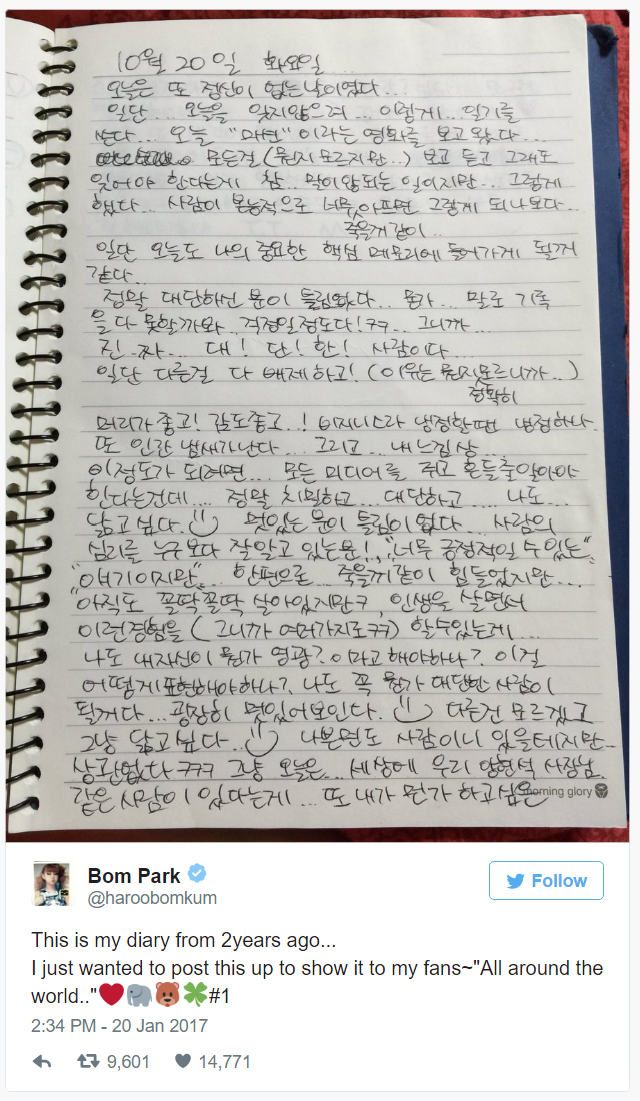 10월 20일 화요일
오늘은 또 정신이 없는날이였다...
일단... 오늘을 잊지않으려... 이렇게... 일기를
쓴다... 오늘 "매현"이라는 영화를 보고왔다...
모든걸 (뭔지모르지만..) 보고 듣고 그래도
잊어야 한다는게 참.. 말이않되는 일이지만... 그렇게
했다... 사람이 본능적으로 너무아프면 그렇게 되나보다...
죽을꺼같이...
일단 오늘도 나의 중요한 핵심 메모리에 들어가게 될꺼
같다...
정말 대단하신 분이 틀림없다... 뭔가... 말로 기록
을 다 못할까봐.. 걱정일정도다!ㅋㅋ... 그니까...
진-짜... 대! 단! 한! 사람이다...
일단 다른걸 다 배제하고! (이유는 뭔지모르니까...)
정확히
머리가좋고! 감도좋고..! 비지니스라 냉정할땐 냉정하나
또 인간 냄새가난다... 그리고... 내느낌상...
이정도가 되려면... 모든 미디어를 쥐고 흔들줄알아야
한다는건데... 정말 치밀하고... 대단하고... 나도...
닮고싶다. 멋있는 분이 틀림이없다... 사람의
심리를 누구보다 잘알고 있는분!.. "너무 긍정적일 수있는"
"얘기이지만" ... 한편으로... 죽을꺼같이 힘들었지만...
"아직도 꼴딱꼴딱 살아있지만ㅋ, 인생을 살면서
이런경험을 (그니까 여러가지로ㅋㅋ) 할수있는게...
나도 내자신이 뭔가 영광? 이라고해야하나? 이걸
어떻게표현해야하나? 나도 꼭 뭔가 대단한 사람이
될꺼다... 굉장히 멋있어보인다. 다른건 모르겠고
그냥 닮고싶다.. 나쁜면도 사람이니 있을테지만...
상관없다ㅋㅋㅋ 그냥 오늘은... 세상에 우리 양현석 사장님
같은 사람이 있다는게... 또 내가 뭔가 하고싶은
morning glory
Bom Park
Follow
@haroobomkum
This is my diary from 2years ago...
I just wanted to post this up to show it to my fans~"All around the
world.."❤️🐘🐻🍀#1
2:34 PM - 20 Jan 2017
9,601 14,771